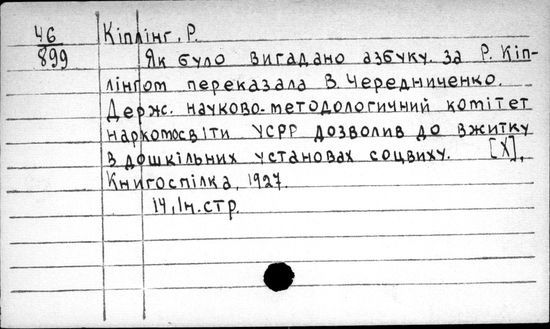 46
899
Кіплінг, Р.
Як було вигадано азбуку. За Р. Кіп-
лінгом переказала В. Чередниченко.
Держ. науково-методологичний комітет
наркомосвіти УСРР дозволив до вжитку
в дошкільних установах соцвиху. [Х],
Книгоспілка, 1927.
14, Ін. стр.